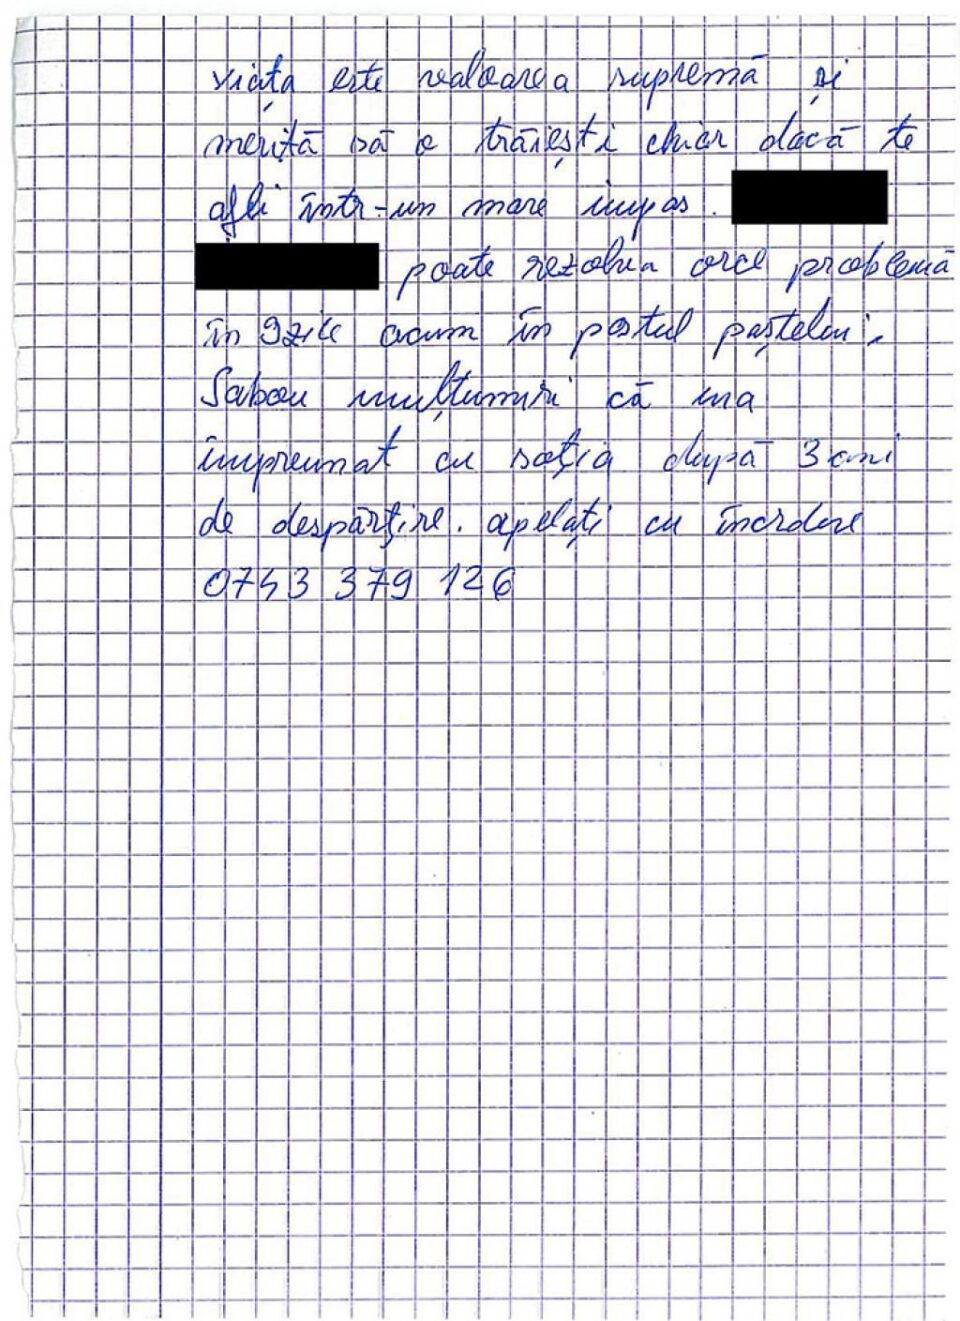 viața este valoarea supremă și
merită să o trăiești chiar dacă te
afli într-un mare impas.
poate rezolva orce problemă
în 9 zile acum în postul paștelui.
Sabau mulțumiri că ma
impreunat cu soția după 3 ani
de despărțire. apelați cu încrdere
0743 379 126